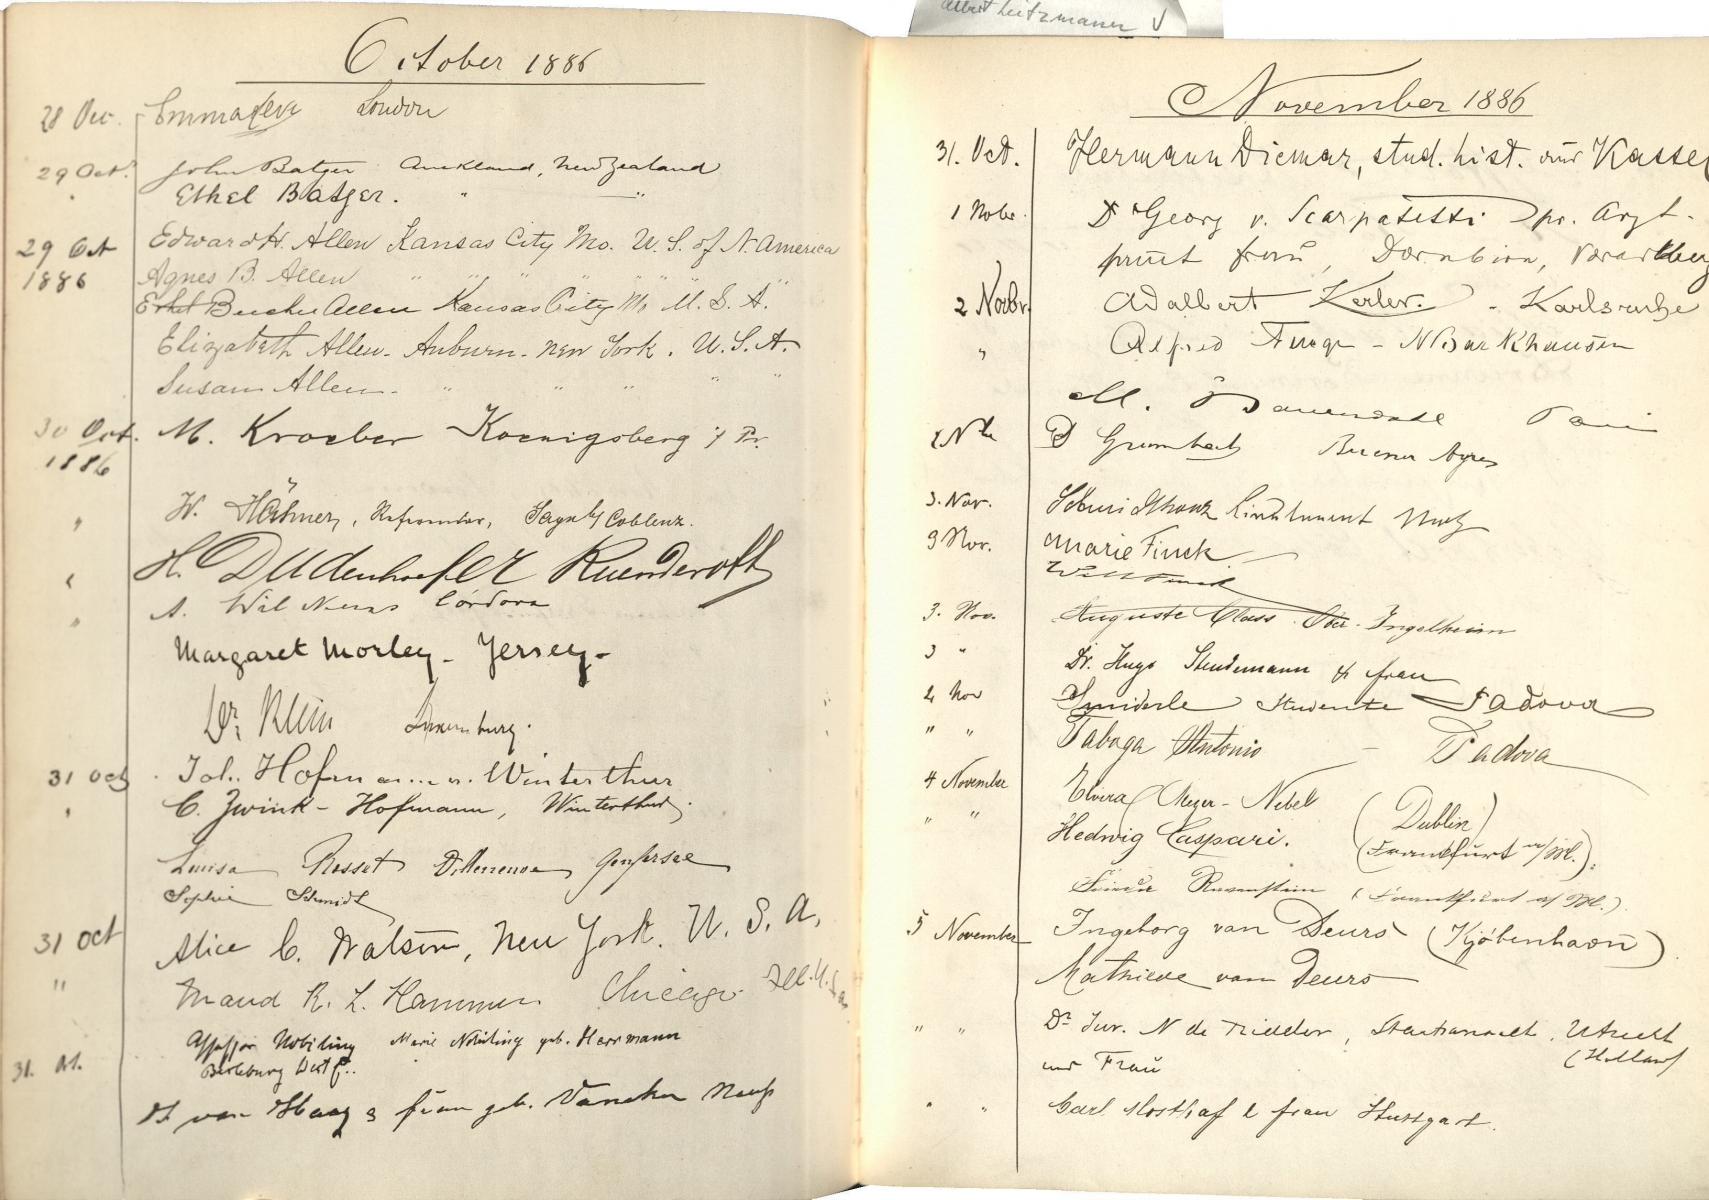 October 1886
28 Oct. Emma Levi London
29 Oct. John Batger Auckland, New Zealand
Ethel Batger. " "
29 Oct Edward H. Allen Kansas City Mo. U. S. of N. America
1886 Agnes B. Allen " " " " " " "
Ethel Beecher Allen Kansas City Mo U. S. A.
Elizabeth Allen - Auburn - New York. U. S. A.
Susan Allen - " " " " "
30 Oct. M. Kroeber Koenigsberg i/ Pr.
1886
" W. Hähner, Referendar, Sayn b/ Coblenz.
" H. Dudenhoefer Ruenderoth
" A. Córdova
Margaret Morley - Jersey -
Dr. Klein Luxemburg.
31 Oct Joh. Hofmann Winterthur
" C. Zwink - Hofmann, Winterthur.
Louisa Rosset Genfersee
Sophie Schmidt
31 Oct Alice C. Watson, New York. U. S. A.
" Maud R. L. Hammer Chicago Ill. U. S. A.
Assessor Nobiling Marie Nobiling geb. Herrmann
31. Oct. Berleburg Westf.
Dr van Haag & frau geb. Neuss
Albert Leitzmann
November 1886
31. Oct. Hermann Diemar, stud. hist. aus Kassel
1 Nobr. Dr Georg v. Scarpatetti pr. Arzt -
samt Frau, Dornbirn, Vorarlberg
2 Novbr. Adalbert Kerler. - Karlsruhe
" Alfred - N Barkhausen
M. Bauendahl Paris
2 Nbr D Grumbach Buenos Ayres
3. Nov. Lieutenant Metz
3 Nov. Marie Finck
Will Finck
3. Nov. Auguste Class Ober-Ingelheim
3 " Dr. Hugo Steudemann & frau
4 Nov Smiderle Studente Padova
" " Tabaga Antonio - Padova
4 November Elvira Meyer - Nebel (Dublin)
" " Hedwig Caspari. (Frankfurt a/M.).
Rosenstein (Frankfurt a/ M.).
5 November Ingeborg van Deurs (Kjöbenhavn)
Mathilde van Deurs
" " Dr. Jur. N de Ridder, Staatsanwalt, Utrecht
und Frau (Holland)
" " Carl Mosthaf & frau Stuttgart.